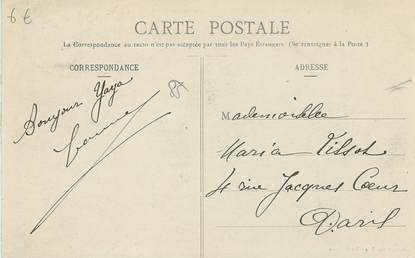 6 €
CARTE POSTALE
La Correspondance au recto n'est pas acceptée par tous les Pays Étrangers. (Se renseigner à la Poste)
CORRESPONDANCE
ADRESSE
Bonjour Yaya
Mademoiselle
Maria Tissot
4 rue Jacques Cœur
Paris